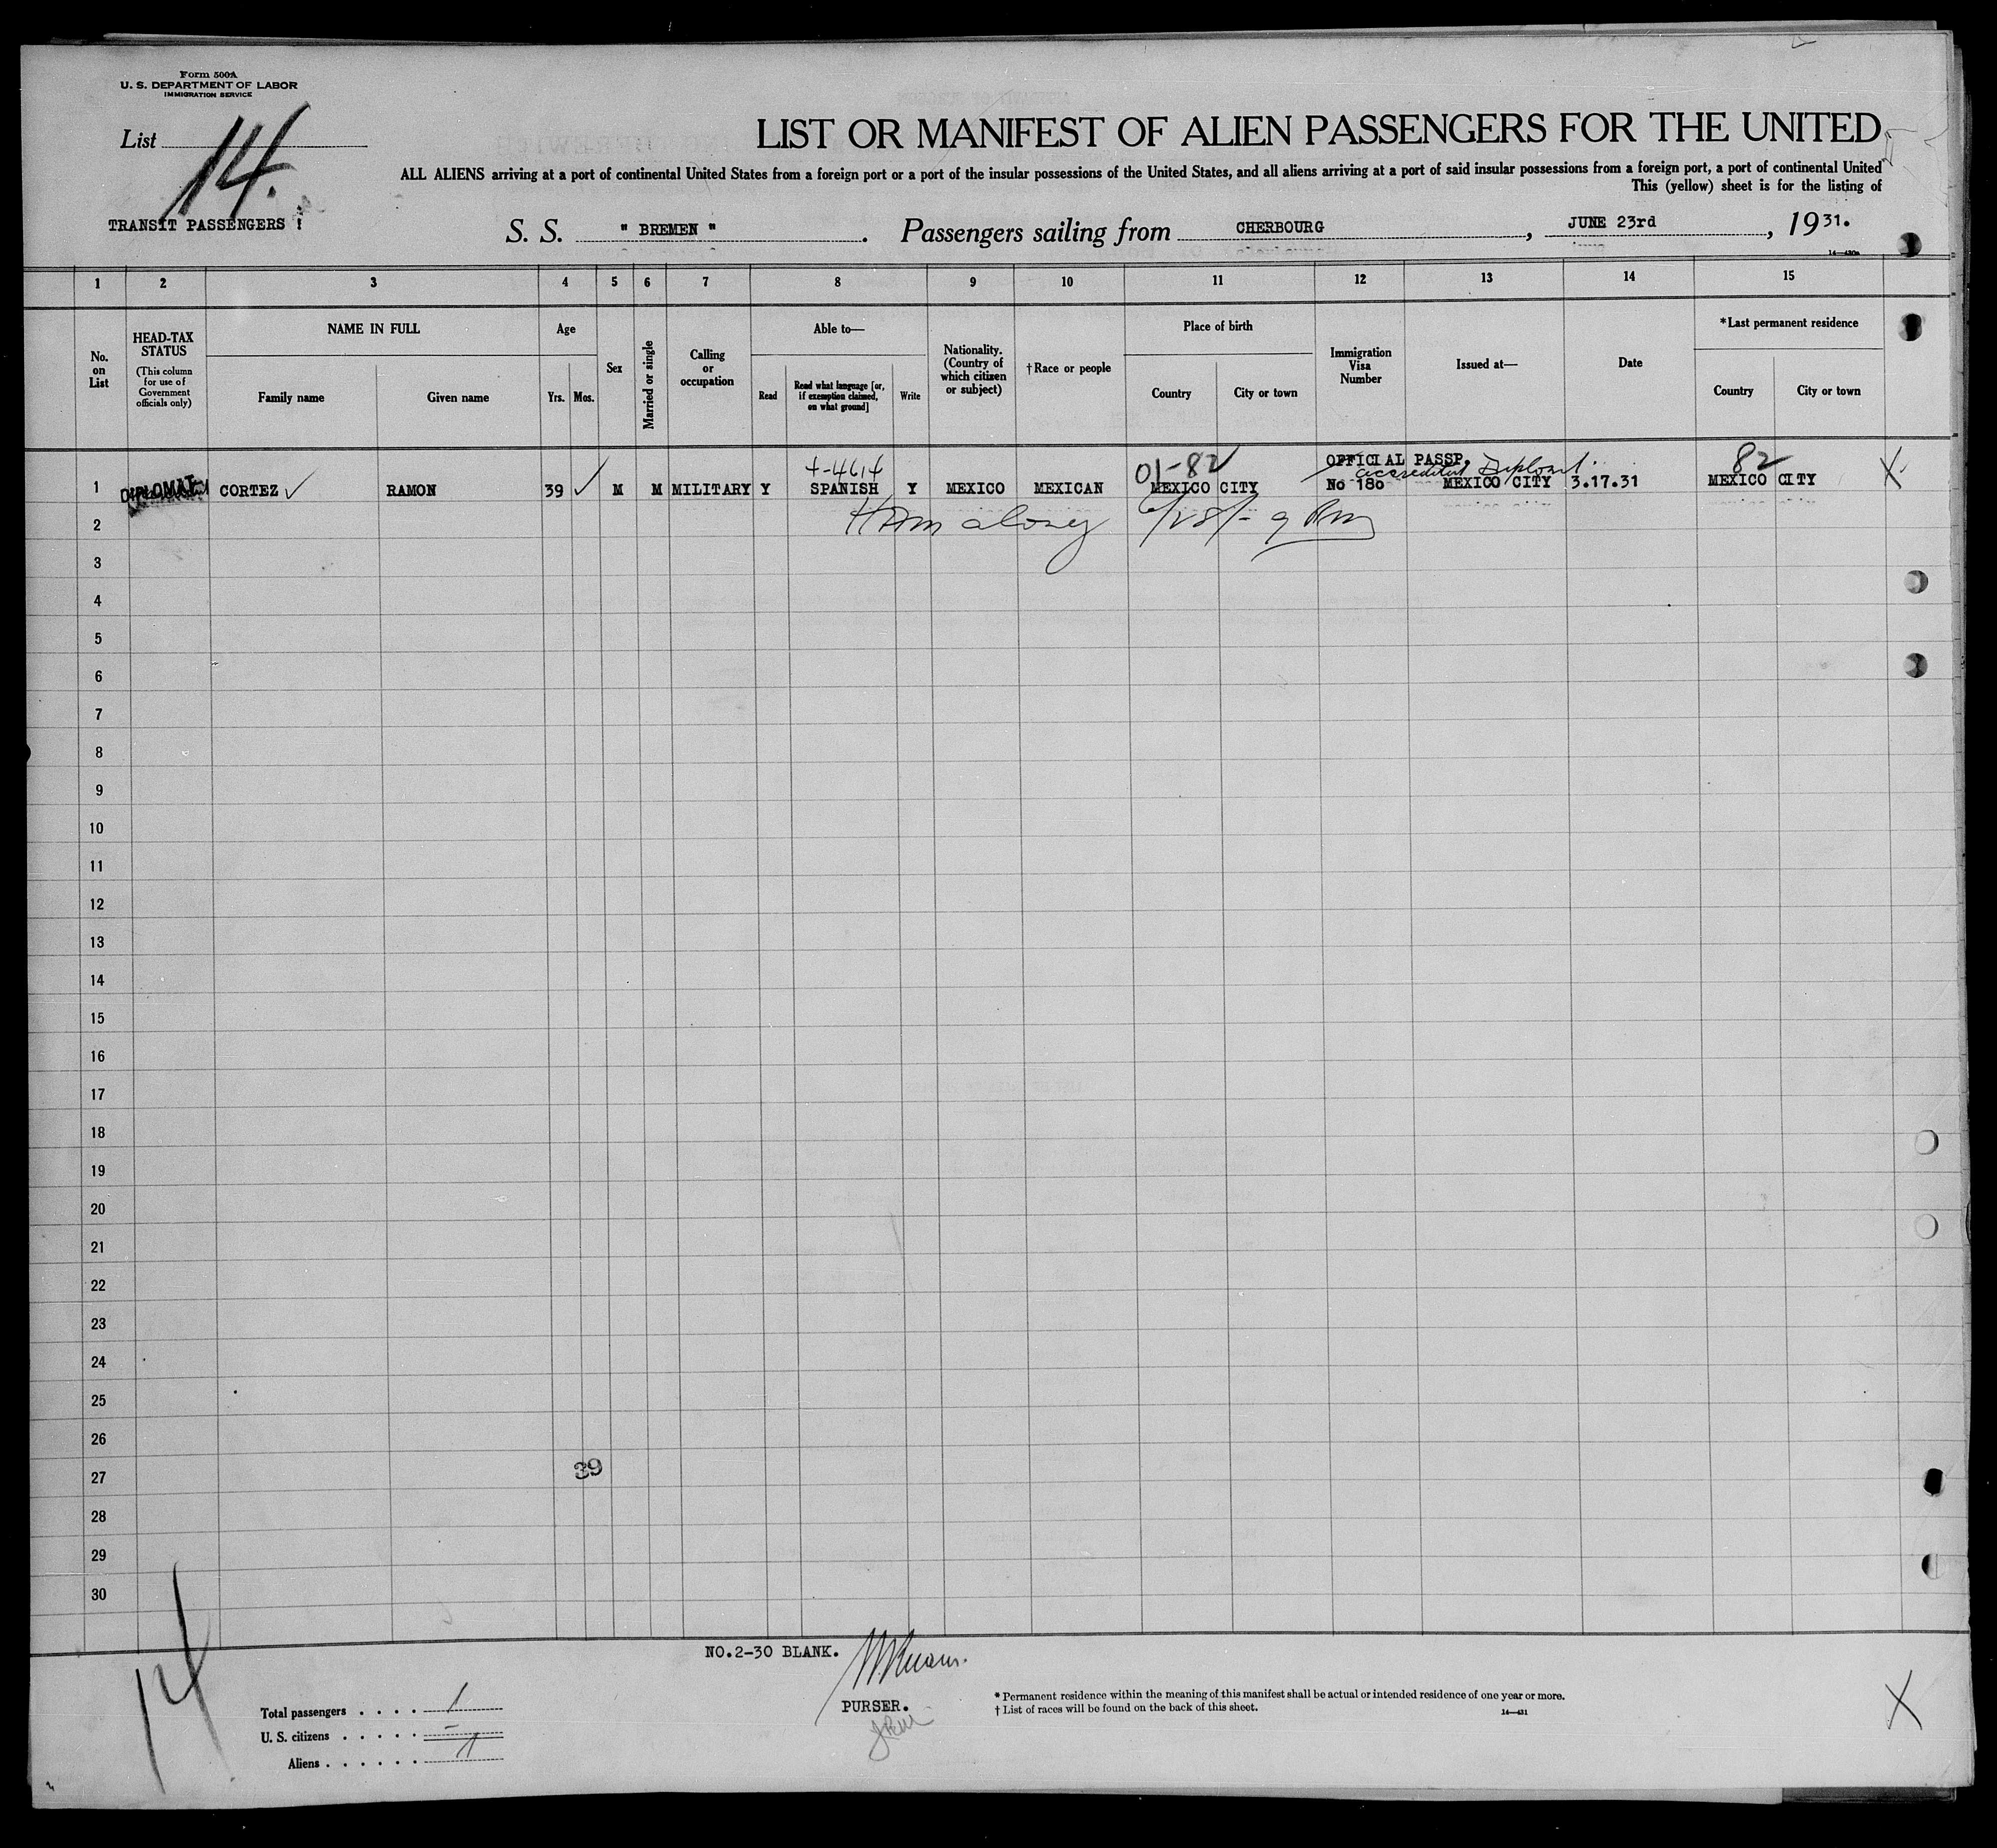 Form 500A
U. S. DEPARTMENT OF LABOR
IMMIGRATION SERVICE
List 14.
TRANSIT PASSENGERS !
LIST OR MANIFEST OF ALIEN PASSENGERS FOR THE UNITED
ALL ALIENS arriving at a port of continental United States from a foreign port or a port of the insular possessions of the United States, and all aliens arriving at a port of said insular possessions from a foreign port, a port of continental United
This (yellow) sheet is for the listing of
S. S. " BREMEN ". Passengers sailing from CHERBOURG, JUNE 23rd, 1931.
14—430a
1 2 3 4 5 6 7 8 9 10 11 12 13 14 15
No. on List
HEAD-TAX STATUS
(This column for use of Government officials only)
NAME IN FULL
Family name
Given name
Age
Yrs. Mos.
Sex
Married or single
Calling or occupation
Able to—
Read
Read what language [or, if exemption claimed, on what ground]
Write
Nationality. (Country of which citizen or subject)
†Race or people
Place of birth
Country
City or town
Immigration Visa Number
Issued at—
Date
*Last permanent residence
Country
City or town
4-4614 01-82 OFFICIAL PASSP. accredited Diplomat. 82
1 DIPLOMAT CORTEZ RAMON 39 M M MILITARY Y SPANISH Y MEXICO MEXICAN MEXICO CITY No 180 MEXICO CITY 3.17.31 MEXICO CITY X
2
3
4
5
6
7
8
9
10
11
12
13
14
15
16
17
18
19
20
21
22
23
24
25
26
27 39
28
29
30
14
NO.2-30 BLANK.
PURSER.
Total passengers . . . . 1
U. S. citizens . . . . . –
Aliens . . . . . . 1
* Permanent residence within the meaning of this manifest shall be actual or intended residence of one year or more.
† List of races will be found on the back of this sheet.
14—431
X